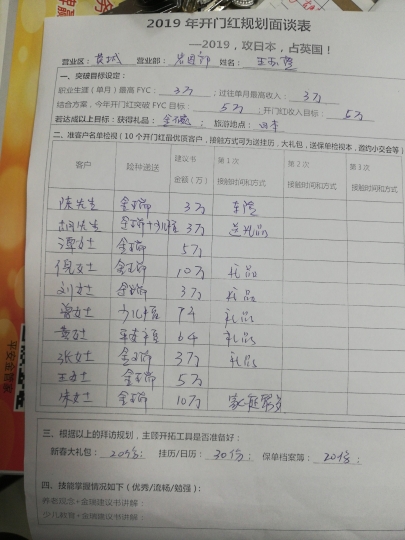 2019年开门红规划面谈表
—2019，攻日本，占英国！
营业区： 营业部： 姓名：
一、突破目标设定：
职业生涯（单月）最高 FYC： 3万 ；过往单月最高收入： 3万
结合方案，今年开门红突破 FYC 目标： 5万 ；开门红收入目标： 5万
若达成以上目标：获得礼品： 旅游地点： 日本
二、准客户名单检视（10个开门红最优质客户，接触方式可为送挂历，大礼包，送保单检视本，邀约小交会等）
客户 险种递送 建议书金额（万） 第1次接触时间和方式 第2次接触时间和方式 第3次接触时间和方式
陈先生 金瑞 3万
胡先生 金瑞+少儿福 3万 送礼品
谭女士 金瑞 5万
倪女士 金瑞 10万 礼品
刘女士 金瑞 3万 礼品
曾女士 少儿福 礼品
黄女士 礼品
张女士 金瑞 3万 礼品
王女士 金瑞 5万
朱女士 金瑞 10万
三、根据以上的拜访规划，主顾开拓工具是否准备好：
新春大礼包： 20份； 挂历/日历： 30份； 保单档案等： 20份；
四、技能掌握情况如下（优秀/流畅/勉强）：
养老观念+金瑞建议书讲解：
少儿教育+金瑞建议书讲解：
平安金管家